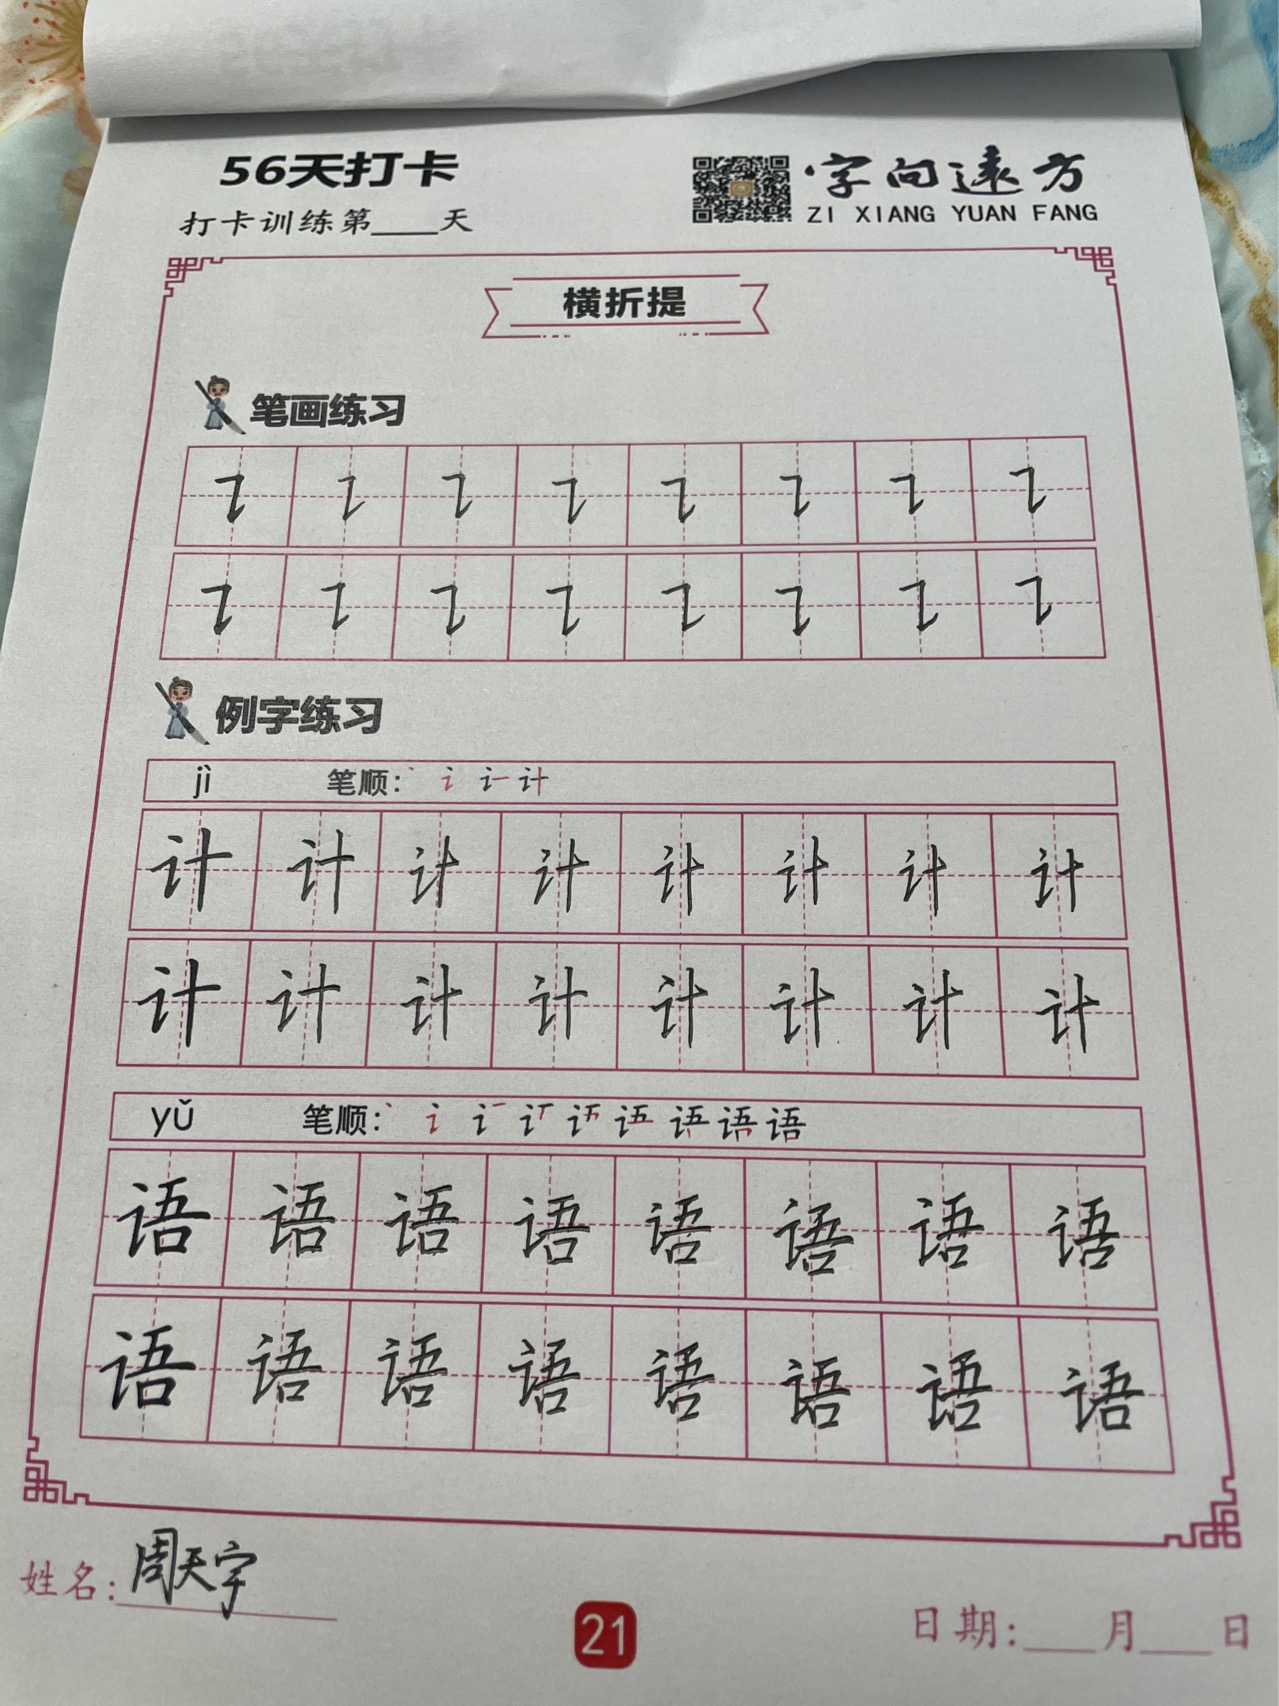 56天打卡
字向远方
打卡训练第____天
ZI XIANG YUAN FANG
横折提
笔画练习
例字练习
jì 笔顺:
计 计 计 计 计 计 计 计
计 计 计 计 计 计 计 计
yǔ 笔顺: 语
语 语 语 语 语 语 语 语
语 语 语 语 语 语 语 语
姓名:周天宇
21
日期:____月____日